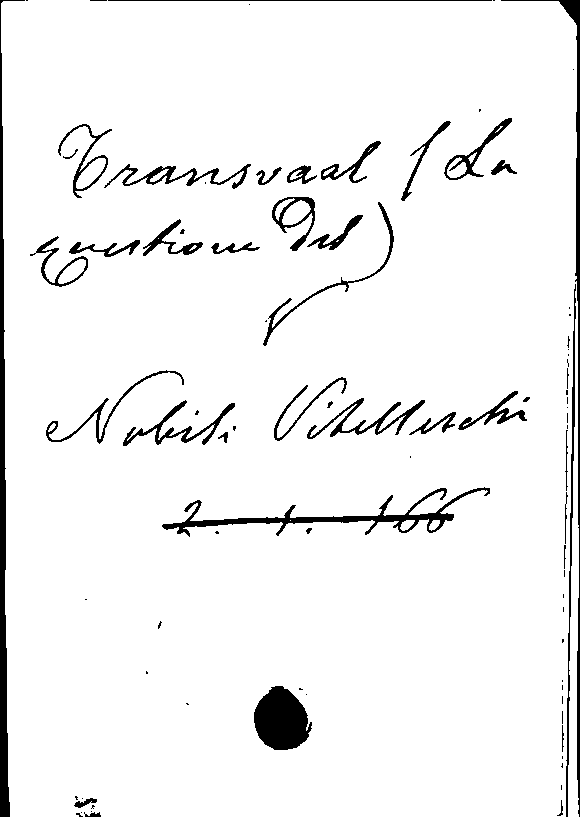 Transvaal (La
questione del)
Nobili Vitelleschi
2. 1. 166